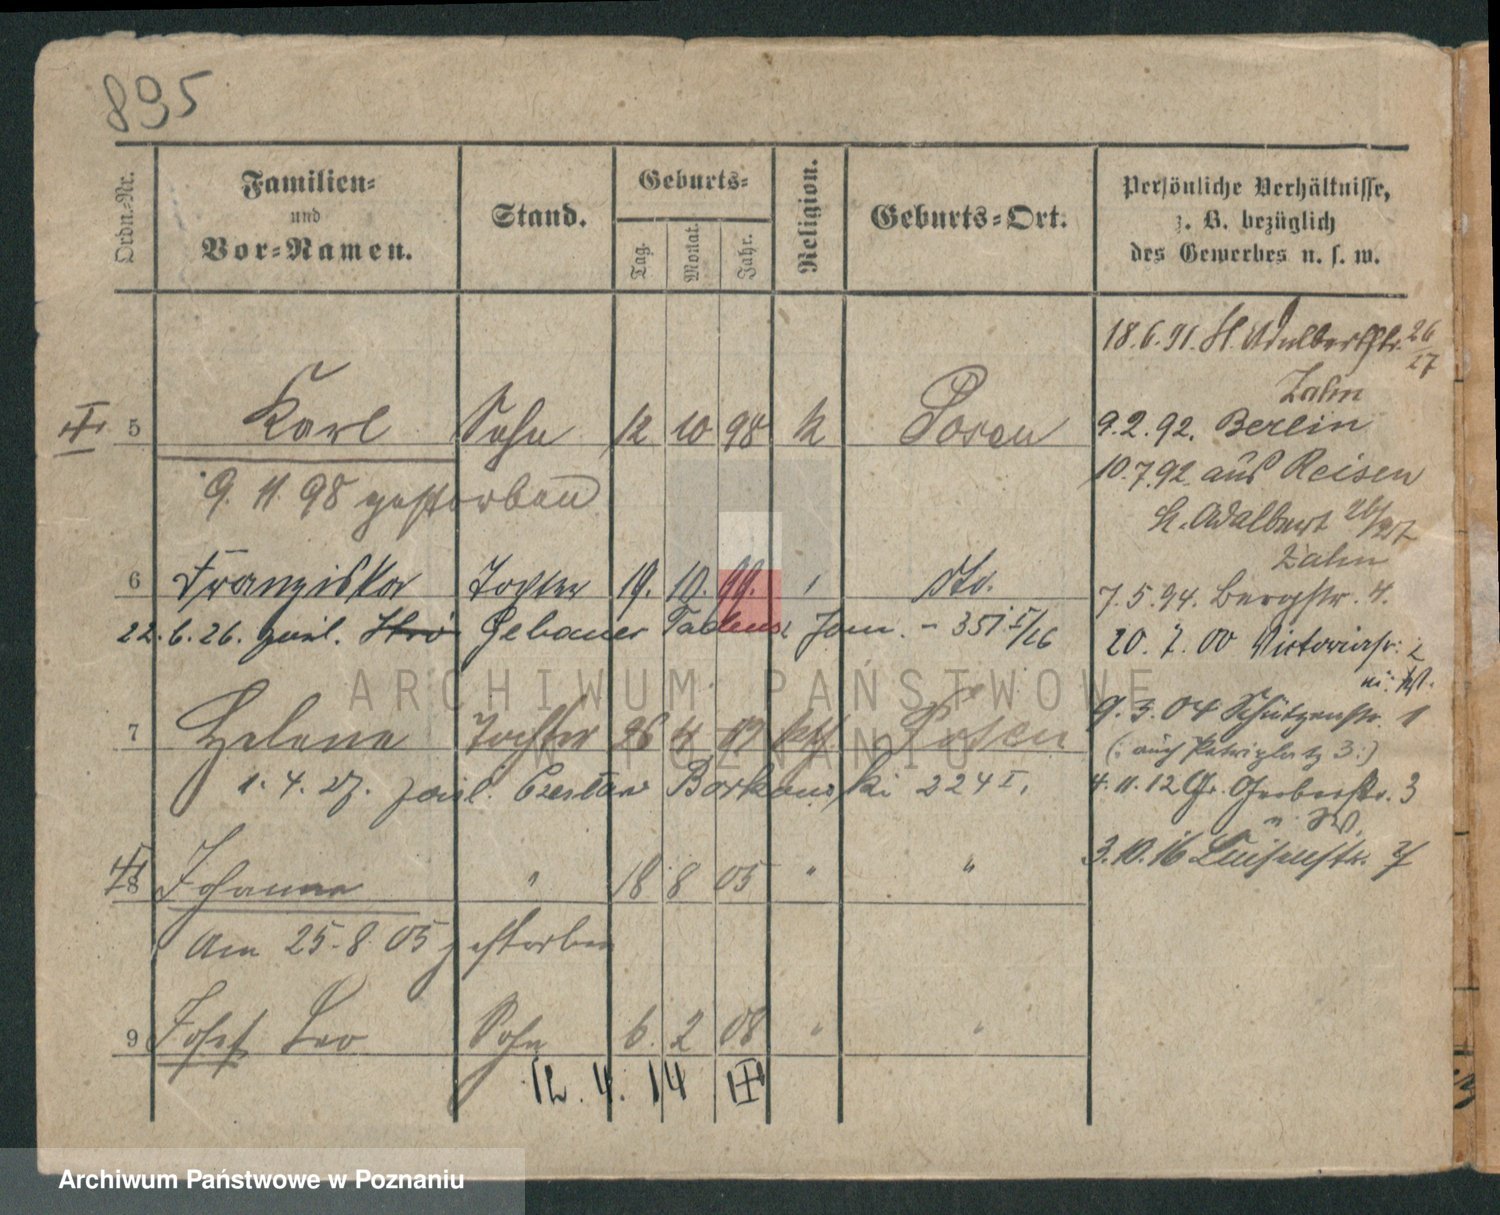 895
Ordn.-Nr.
Familien-
und
Vor-Namen.
Stand.
Geburts-
Tag.
Monat.
Jahr.
Religion.
Geburts-Ort.
Persönliche Verhältnisse,
z. B. bezüglich
des Gewerbes u. s. w.
5 Karl Sohn 12 10 98 k Posen
9. 11. 98 gestorben
6 Franziska Tochter 19. 10. 99. " dto.
22. 6. 26. Gebauer
7 Helene Tochter 26 4 kth Posen
1. 4. 27. 224 I.
8 Johanna " 18 8 05 " "
Am 25. 8. 05 gestorben
9 Josef Leo Sohn 6. 2 08 " "
12. 4. 14
18. 6. 91. St. Adalbertstr. 26/27
Zahn
9. 2. 92. Berlin
10. 7. 92 aus Reisen
St. Adalbert 26/27
Zahn
7. 5. 94. Bergstr. 4.
20. 7. 00 Victoriastr.
9. 3. 04 Schützenstr. 1
(: auch Petriplatz 3 :)
4. 11. 12 Gr. Gerberstr. 3
3. 10. 16 Luisenstr.
ARCHIWUM PAŃSTWOWE
W POZNANIU
Archiwum Państwowe w Poznaniu